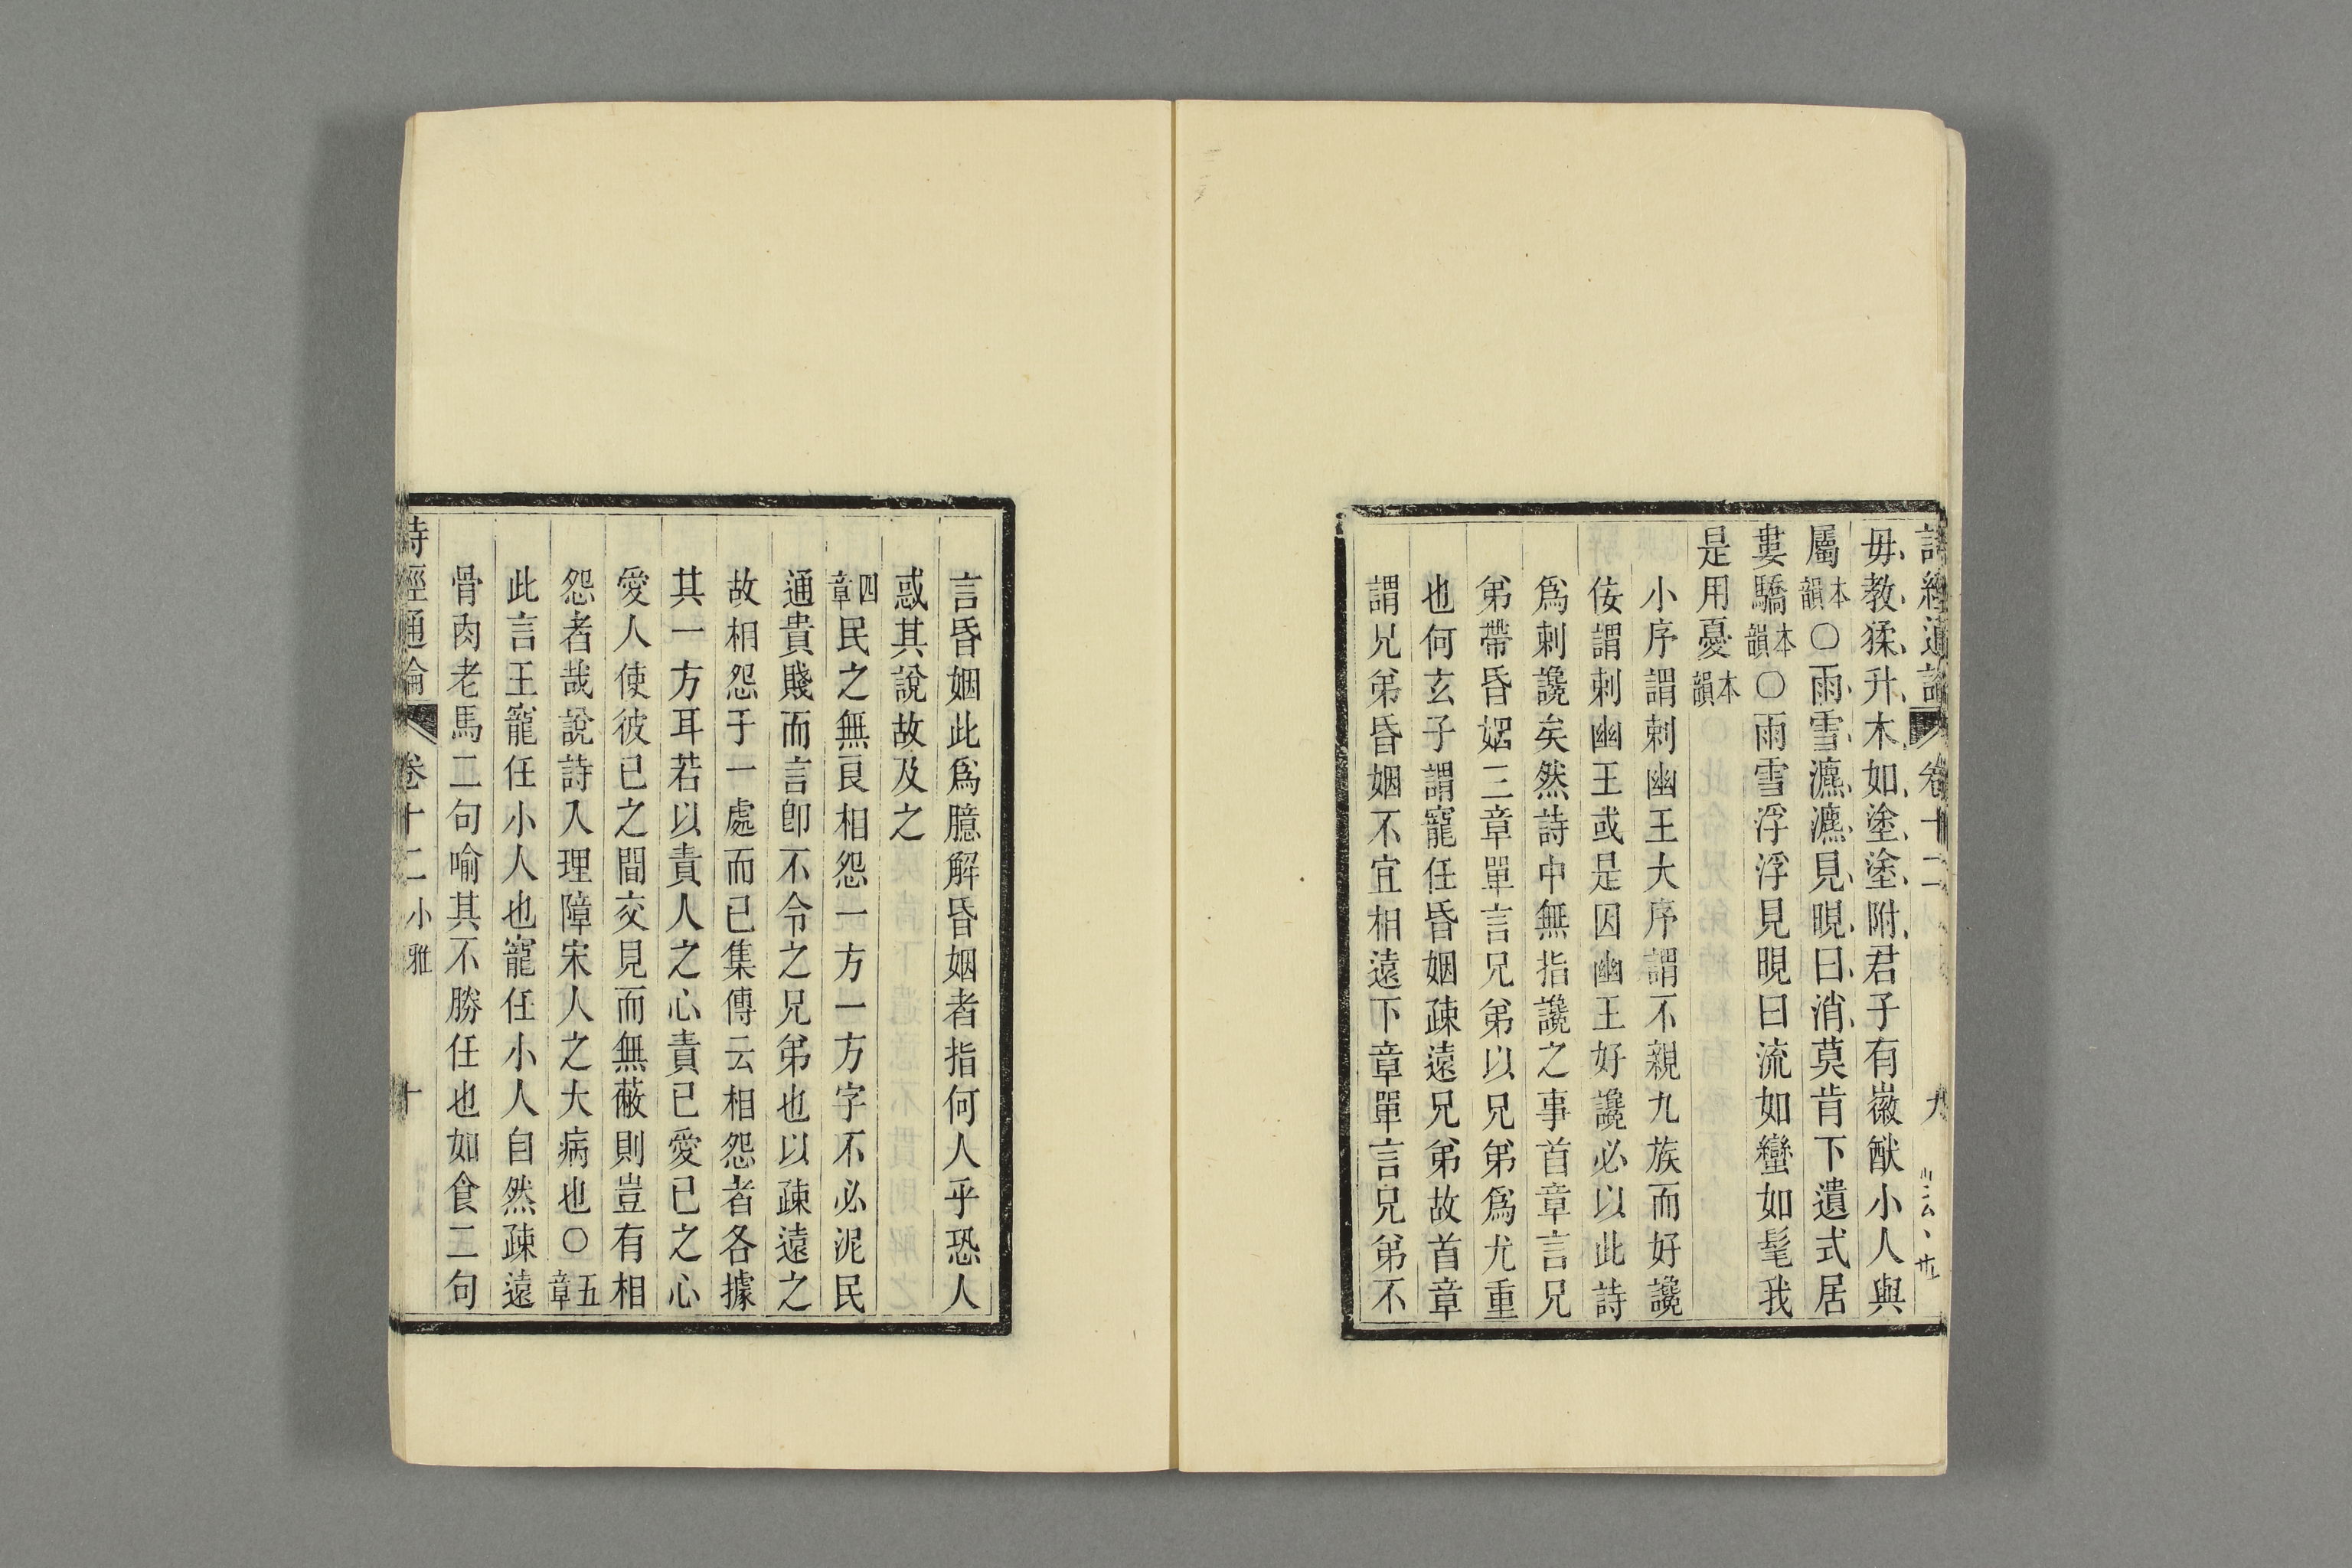 詩經通論 卷十二 九
毋教猱升木如塗塗附君子有徽猷小人與
屬本韻○雨雪瀌瀌見晛曰消莫肯下遺式居
婁驕本韻○雨雪浮浮見晛曰流如蠻如髦我
是用憂本韻
小序謂刺幽王大序謂不親九族而好讒
佞謂刺幽王或是因幽王好讒必以此詩
爲刺讒矣然詩中無指讒之事首章言兄
弟帶昏姻三章單言兄弟以兄弟爲尤重
也何玄子謂寵任昏姻疎遠兄弟故首章
謂兄弟昏姻不宜相遠下章單言兄弟不
言昏姻此爲臆解昏姻者指何人乎恐人
惑其說故及之
四章民之無良相怨一方一方字不必泥民
通貴賤而言卽不令之兄弟也以疎遠之
故相怨于一處而已集傳云相怨者各據
其一方耳若以責人之心責已愛已之心
愛人使彼已之間交見而無蔽則豈有相
怨者哉說詩入理障宋人之大病也○五章
此言王寵任小人也寵任小人自然疎遠
骨肉老馬二句喻其不勝任也如食二句
詩經通論 卷十二 小雅 十